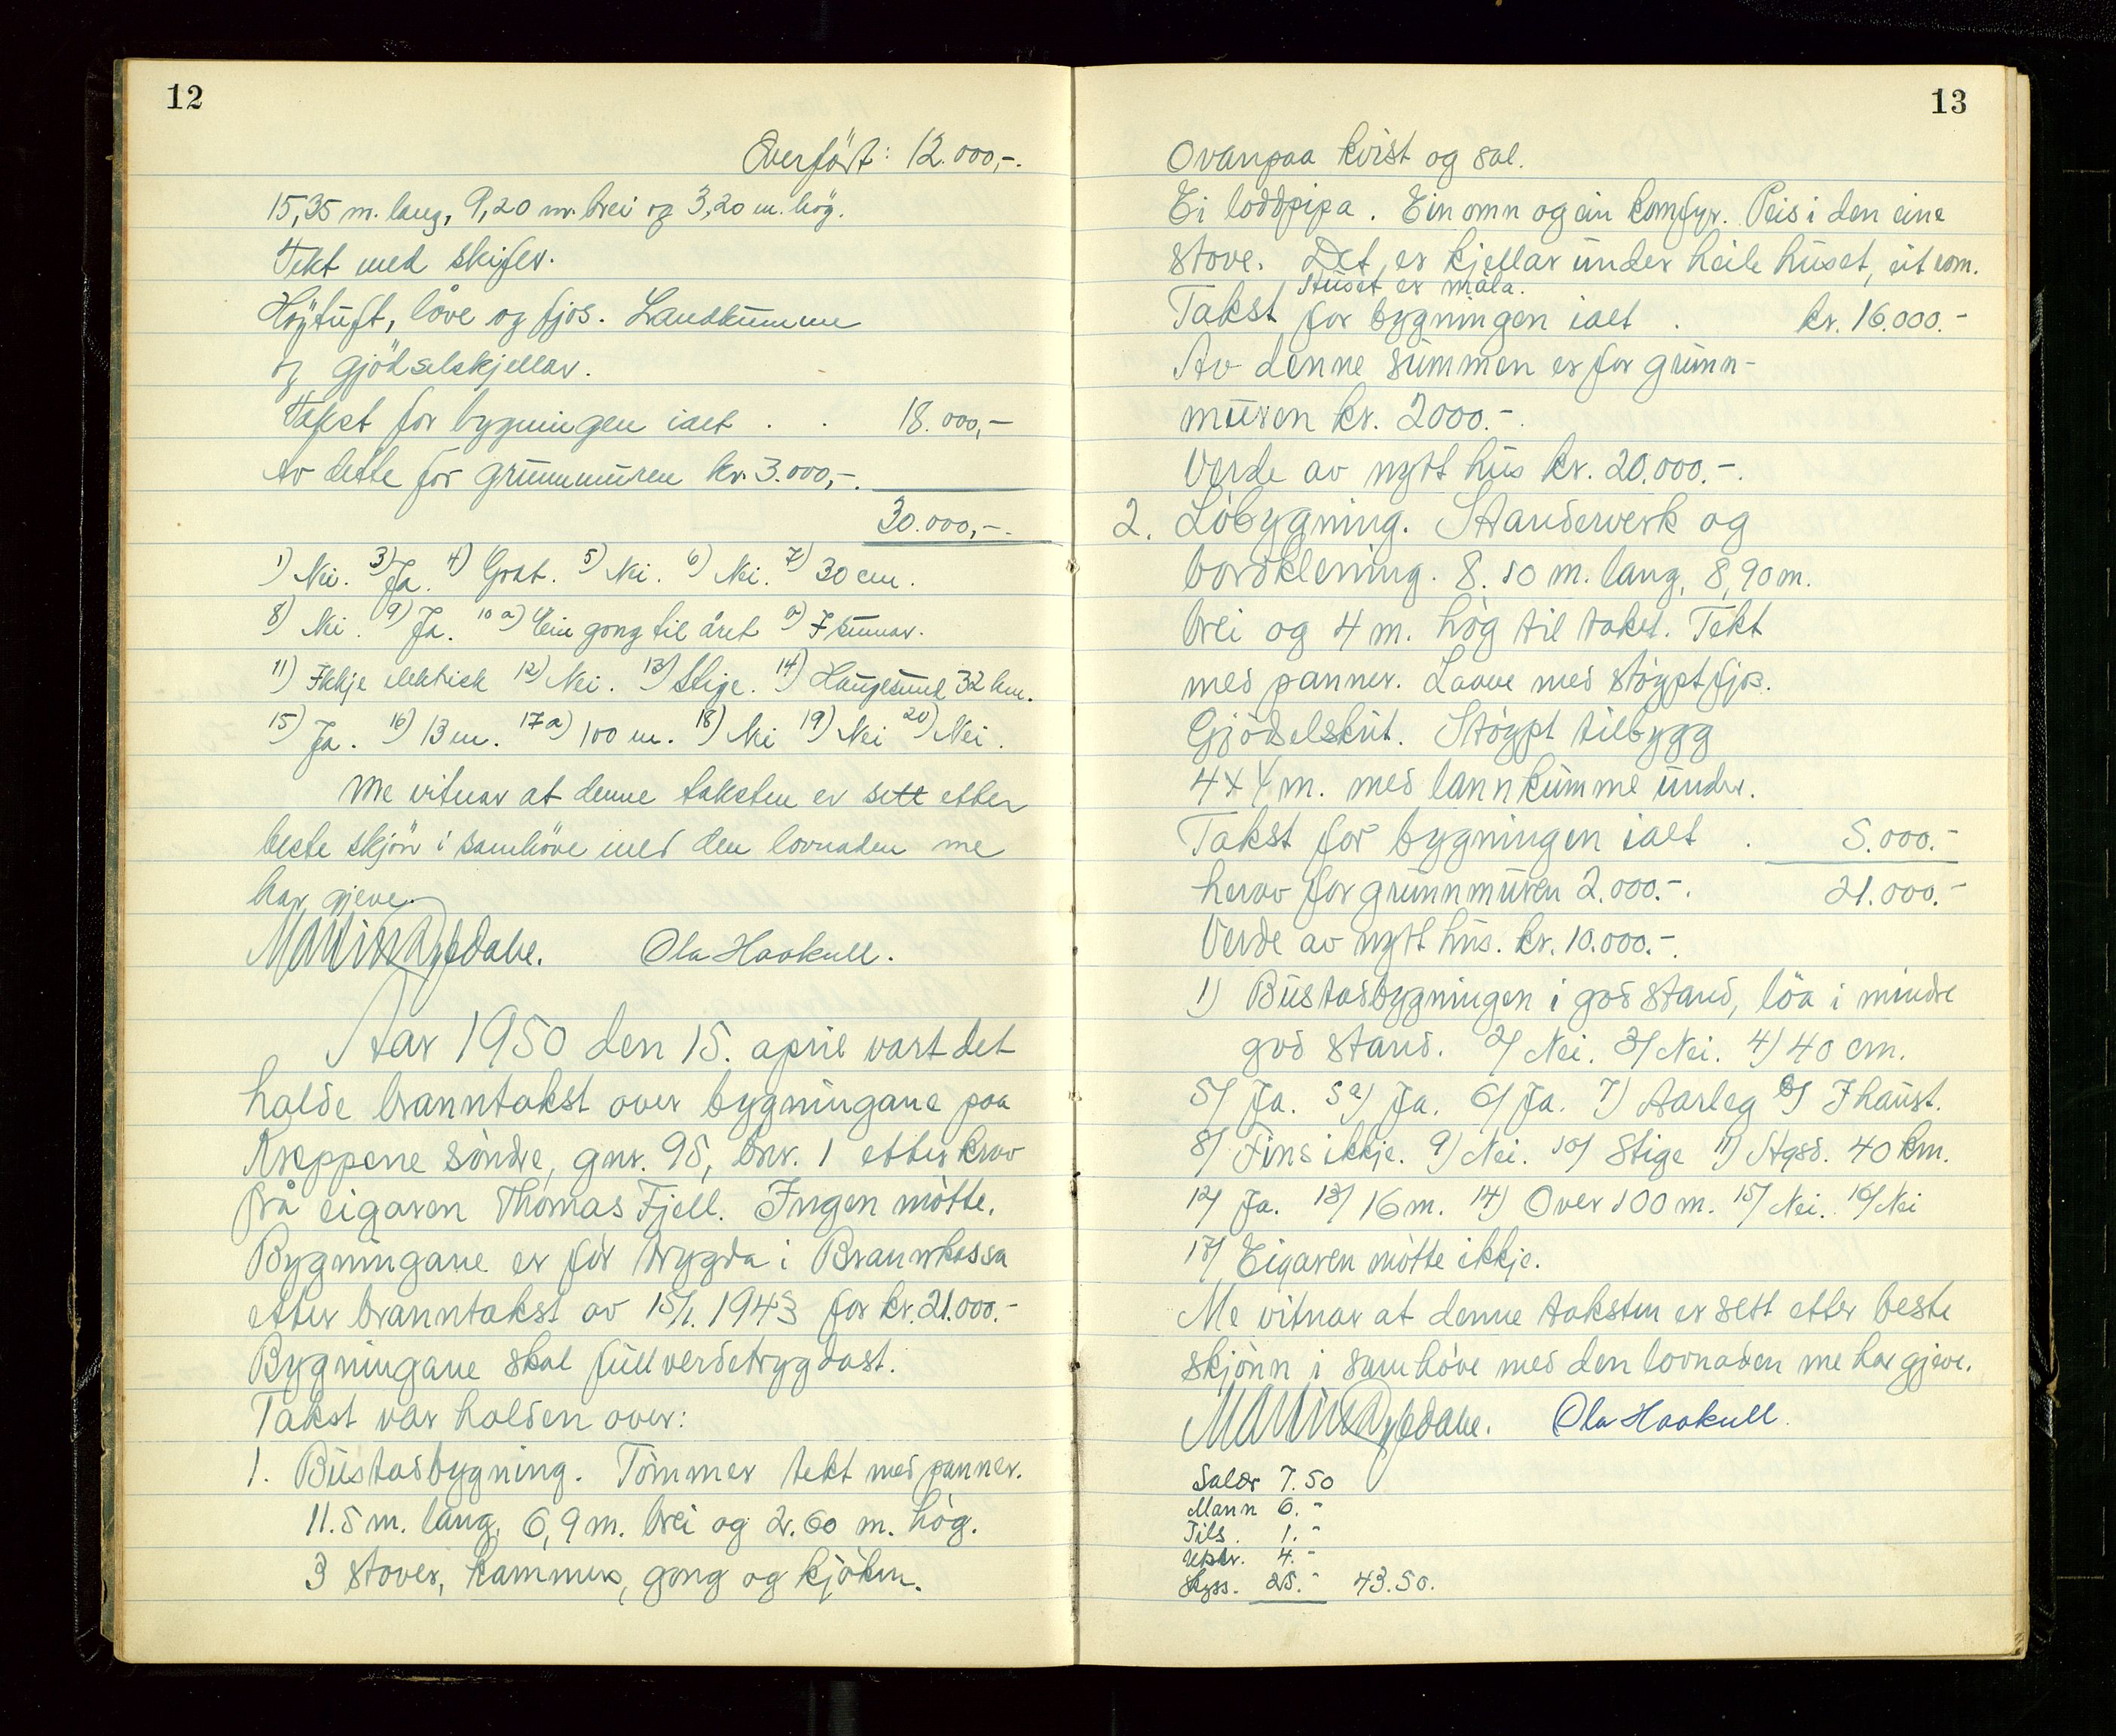 12
Överfört: 12.000,-.
15,35 m. lang, 9,20 m. brei og 3,20 m. hög.
Tekt med skifer.
Höytuft, låve og fjos. Landkumme
og gjödselskjellar.
Takst for bygningen ialt . . 18.000,-
Av dette for grunnmuren kr. 3.000,-.
30.000,-.
1) Nei. 3) Ja. 4) Grat. 5) Nei. 6) Nei. 7) 30 cm.
8) Nei. 9) Ja. 10 a) Ein gong til året b) I sumar.
11) Ikkje elektrisk 12) Nei. 13) Stige. 14) Haugesund 32 km.
15) Ja. 16) 13 m. 17a) 100 m. 18) Nei 19) Nei 20) Nei.
Me vitnar at denne taksten er sett etter
beste skjön i samhöve med den lovnaden me
har gjeve.
Ola Haakull.
Aar 1950 den 15. april vart det
halde branntakst over bygningane paa
Kreppene söndre, gnr. 95, bnr. 1 etter krav
frå eigaren Thomas Fjell. Ingen mötte.
Bygningane er för trygda i Brannkassa
etter branntakst av 15/1. 1943 for kr. 21.000.-
Bygningane skal fullverdetrygdast.
Takst var halden over:
1. Bustadbygning. Tömmer tekt med panner.
11.5 m. lang, 6,9 m. brei og 2.60 m. hög.
3 stover, kammers, gong og kjöken.
13
Ovanpaa kvist og sal.
Ei loddpipa. Ein omn og ein komfyr. Peis i den eine
stove. Det er kjellar under heile huset, eit rom.
Huset er måla.
Takst for bygningen ialt . kr. 16.000.-
Av denne summen er for grunn-
muren kr. 2000.-.
Verde av nytt hus kr. 20.000.-.
2. Löbygning. Standerverk og
bordklening. 8.50 m. lang, 8,90 m.
brei og 4 m. hög til taket. Tekt
med panner. Laave med stöypt fjos.
Gjödselskut. Stöypt tilbygg
4 x 4 m. med lannkumme under.
Takst for bygningen ialt . 5.000.-
herav for grunnmuren 2.000.-. 21.000.-
Verde av nytt hus. kr. 10.000.-.
1) Bustadbygningen i god stand, löa i mindre
god stand. 2) Nei. 3) Nei. 4) 40 cm.
5) Ja. 5a) Ja. 6) Ja. 7) Aarleg b) I haust.
8) Fins ikkje. 9) Nei. 10) Stige 11) Hgsd. 40 km.
12) Ja. 13) 16 m. 14) Over 100 m. 15) Nei. 16) Nei
17) Eigaren mötte ikkje.
Me vitnar at denne taksten er sett etter beste
skjönn i samhöve med den lovnaden me har gjeve.
Ola Haakull.
Salær 7.50
Mann 6.-
Tils. 1.-
Utskr. 4.-
Skyss. 25.- 43.50.